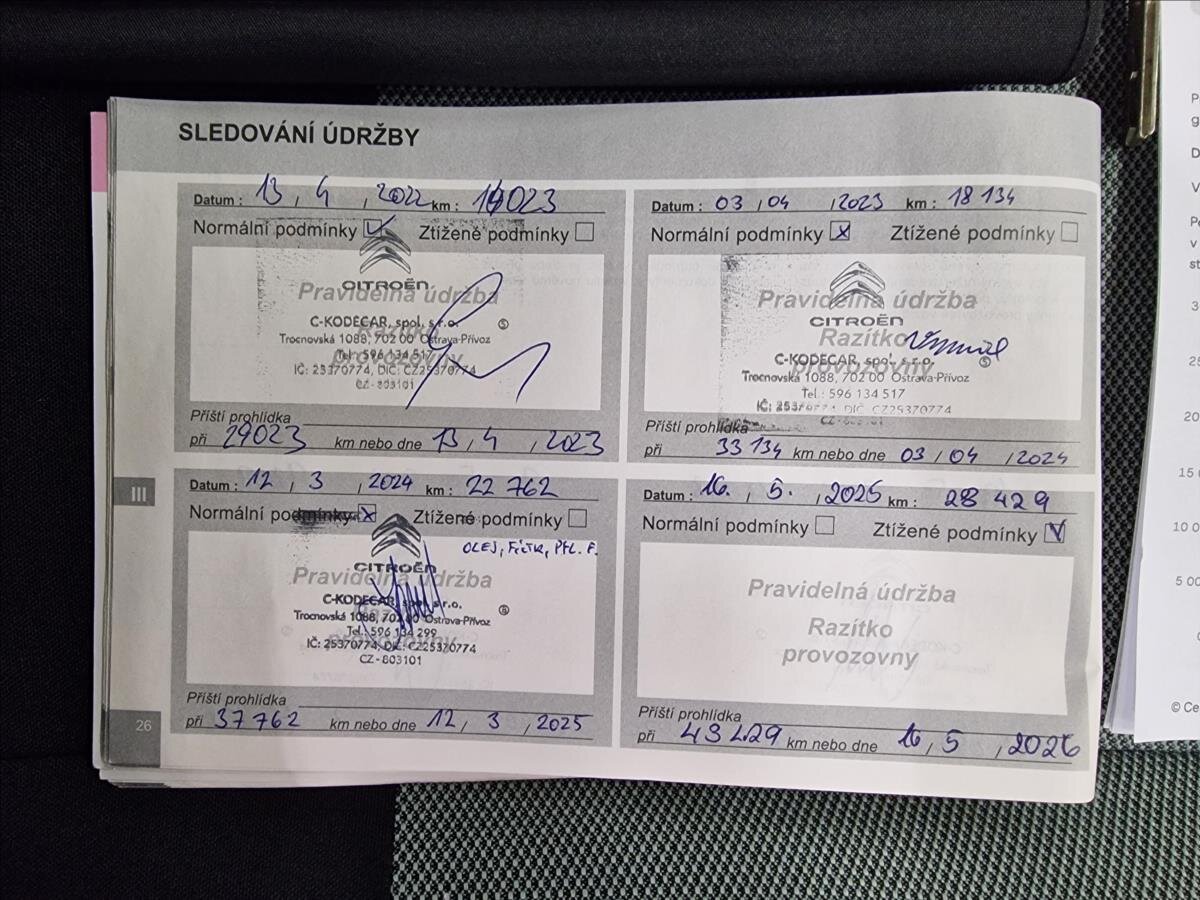 SLEDOVÁNÍ ÚDRŽBY
Datum : 13 , 4 , 2022 km : 14023
Normální podmínky Ztížené podmínky
CITROËN
Pravidelná údržba
C-KODECAR, spol. s r.o.
Razítko
Trocnovská 1088, 702 00 Ostrava-Přívoz
Tel.: 596 134 517
provozovny
IČ: 25370774, DIČ: CZ25370774
CZ - 803101
Příští prohlídka
při 29023 km nebo dne 13 , 4 , 2023
Datum : 03 , 04 , 2023 km : 18 134
Normální podmínky x Ztížené podmínky
Pravidelná údržba
CITROËN
Razítko
C-KODECAR, spol. s r.o.
provozovny
Trocnovská 1088, 702 00 Ostrava-Přívoz
Tel.: 596 134 517
IČ: 25370774 DIČ: CZ25370774
CZ - 803101
Příští prohlídka
při 33 134 km nebo dne 03 , 04 , 2024
III
Datum : 12 , 3 , 2024 km : 22 762
Normální podmínky x Ztížené podmínky
OLEJ, FILTR, PYL. F.
CITROËN
Pravidelná údržba
C-KODECAR, spol. s r.o.
Trocnovská 1088, 702 00 Ostrava-Přívoz
Tel.: 596 134 299
provozovny
IČ: 25370774, DIČ: CZ25370774
CZ - 803101
Příští prohlídka
při 37762 km nebo dne 12 , 3 , 2025
Datum : 16. , 5. , 2025 km : 28 429
Normální podmínky Ztížené podmínky
Pravidelná údržba
Razítko
provozovny
Příští prohlídka
při 43 429 km nebo dne 16 , 5 , 2026
26
© Ce